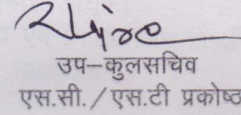 उप–कुलसचिव
एस.सी./एस.टी प्रकोष्ठ